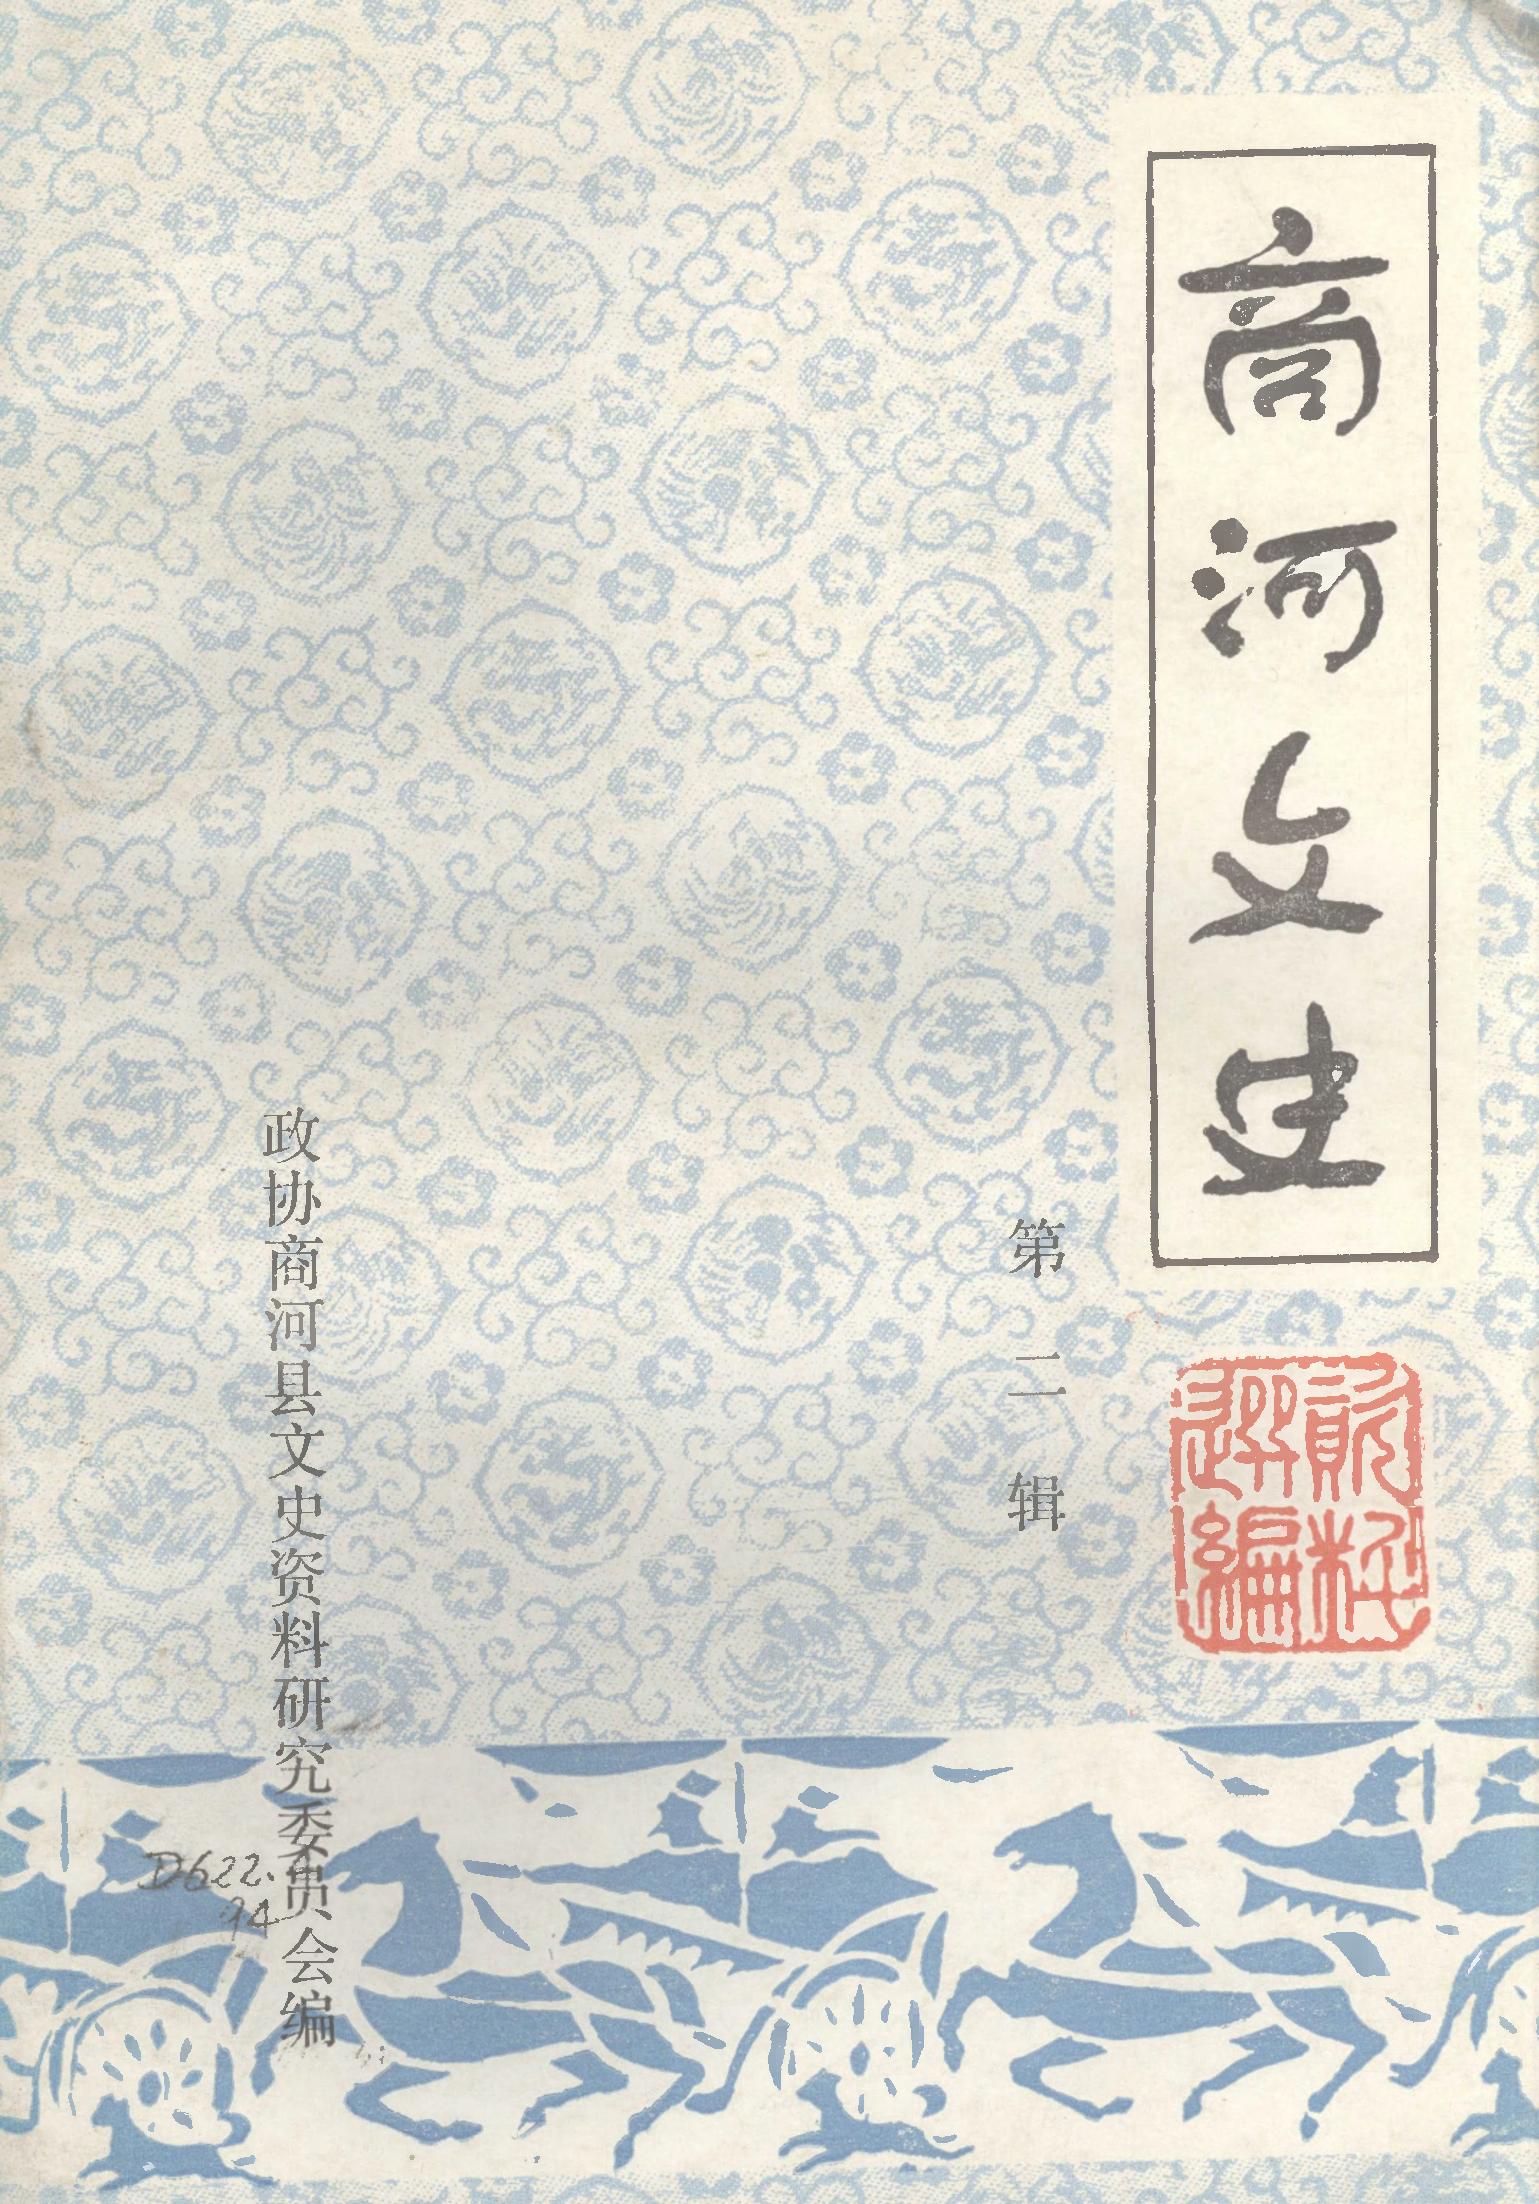 商河文史
第二辑
政协商河县文史资料研究委员会编
D622.
94